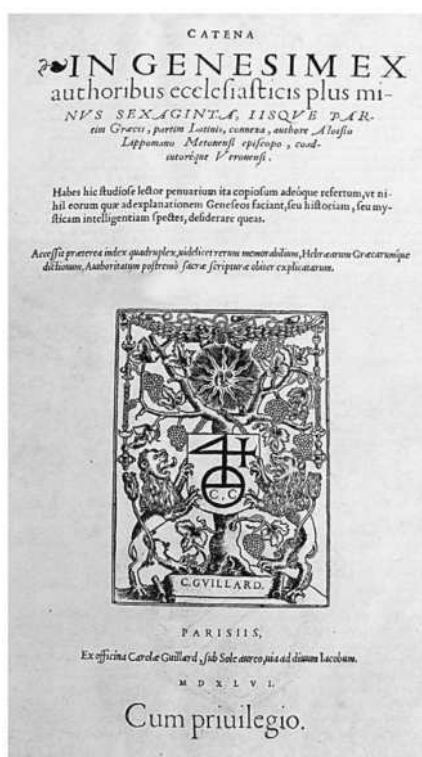 CATENA
IN GENESIM EX
authoribus ecclesiasticis plus mi-
NVS SEXAGINTA, IISQVE PAR-
tim Græcis, partim Latinis, connexa, authore Aloisio
Lippomano Metonensi episcopo, coad-
iutoréque Veronensi.
Habes hic studiose lector penuarium ita copiosum adeóque refertum, vt ni-
hil eorum quæ ad explanationem Geneseos faciant, seu historiam, seu my-
sticam intelligentiam spectes, desiderare queas.
Accessit præterea index quadruplex, uidelicet rerum memorabilium, Hebræarum Græcarumque
dictionum, Authoritatum postremò sacræ scripturæ obiter explicatarum.
C. C
C. GVILLARD.
PARISIIS,
Ex officina Carolæ Guillard, sub Sole aureo, uia ad diuum Iacobum.
M D XLVI.
Cum priuilegio.